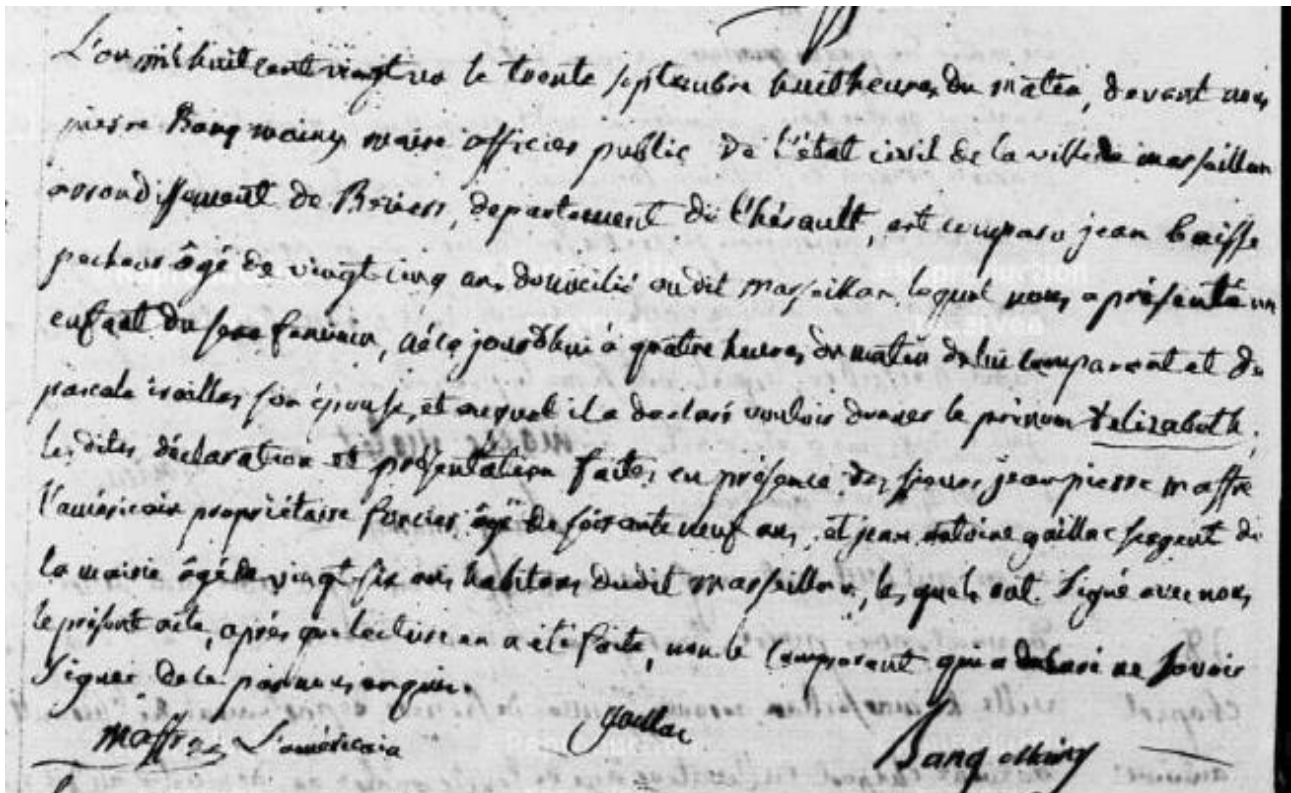 L'an mil huit cent vingt un le trente septembre huit heures du matin, devant nous
pierre Banq maire officier public de l'état civil de la ville de marseillan
arrondissement de Beziers, departement de l'hérault, est comparu jean baisse
pecheur âgé de vingt cinq ans domicilié au dit marseillan lequel nous a présenté un
enfant du sexe feminin, né ce jourd'hui à quatre heures du matin de lui comparant et de
pascale son épouse, et auquel il a declaré vouloir donner le prénom d'elizabeth,
les dites déclaration et présentation faites en présence des sieurs jean pierre maffre
l'américain propriétaire foncier âgé de soixante neuf ans, et jean antoine gaillac sergent de
la mairie âgé de vingt six ans habitans dudit marseillan, les quels ont signé avec nous
le présent acte, après que lecture en a été faite, non le comparant qui a declaré ne savoir
signer de ce par nous enquis.
maffre L'américain
gaillac
Banq